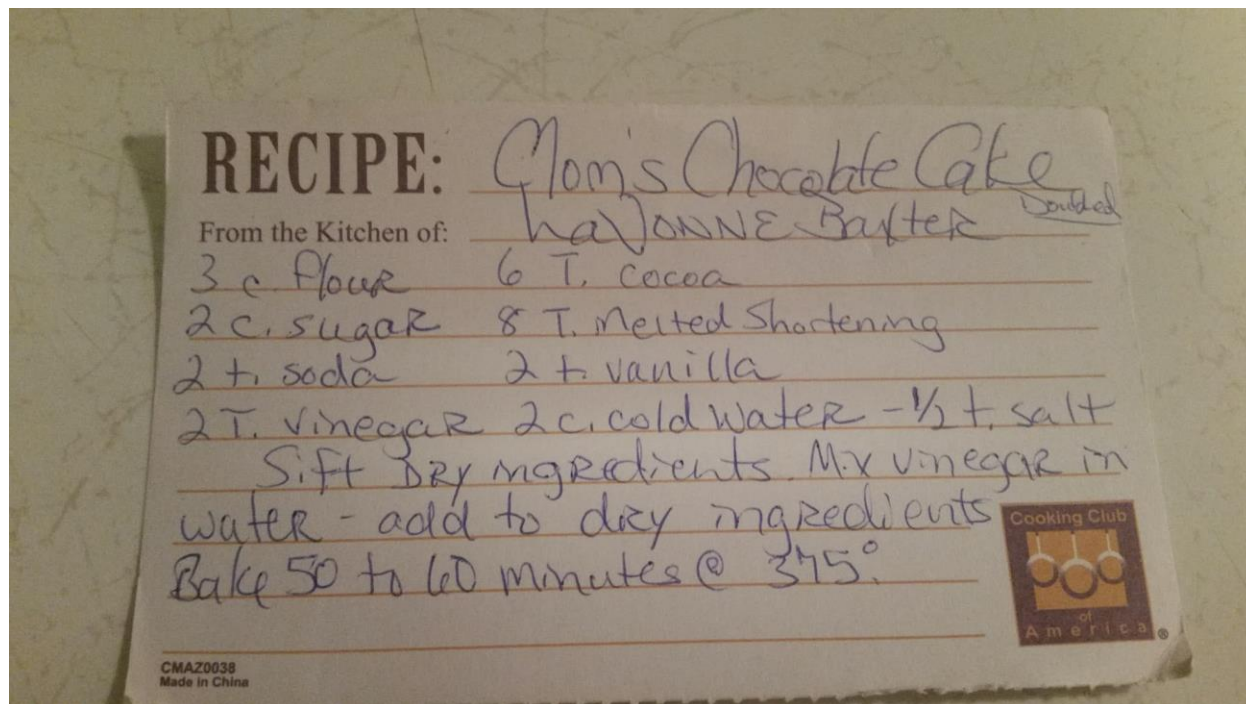 RECIPE: Mom's Chocolate Cake
Doubled
From the Kitchen of: LaVONNE Baxter
3 c. flour 6 T. cocoa
2 c. sugar 8 T. Melted Shortening
2 t. soda 2 t. vanilla
2 T. vinegar 2 c. cold water - 1/2 t. salt
Sift Dry ingredients. Mix vinegar in
water - add to dry ingredients
Bake 50 to 60 minutes @ 375°.
Cooking Club
of
America®
CMAZ0038
Made in China